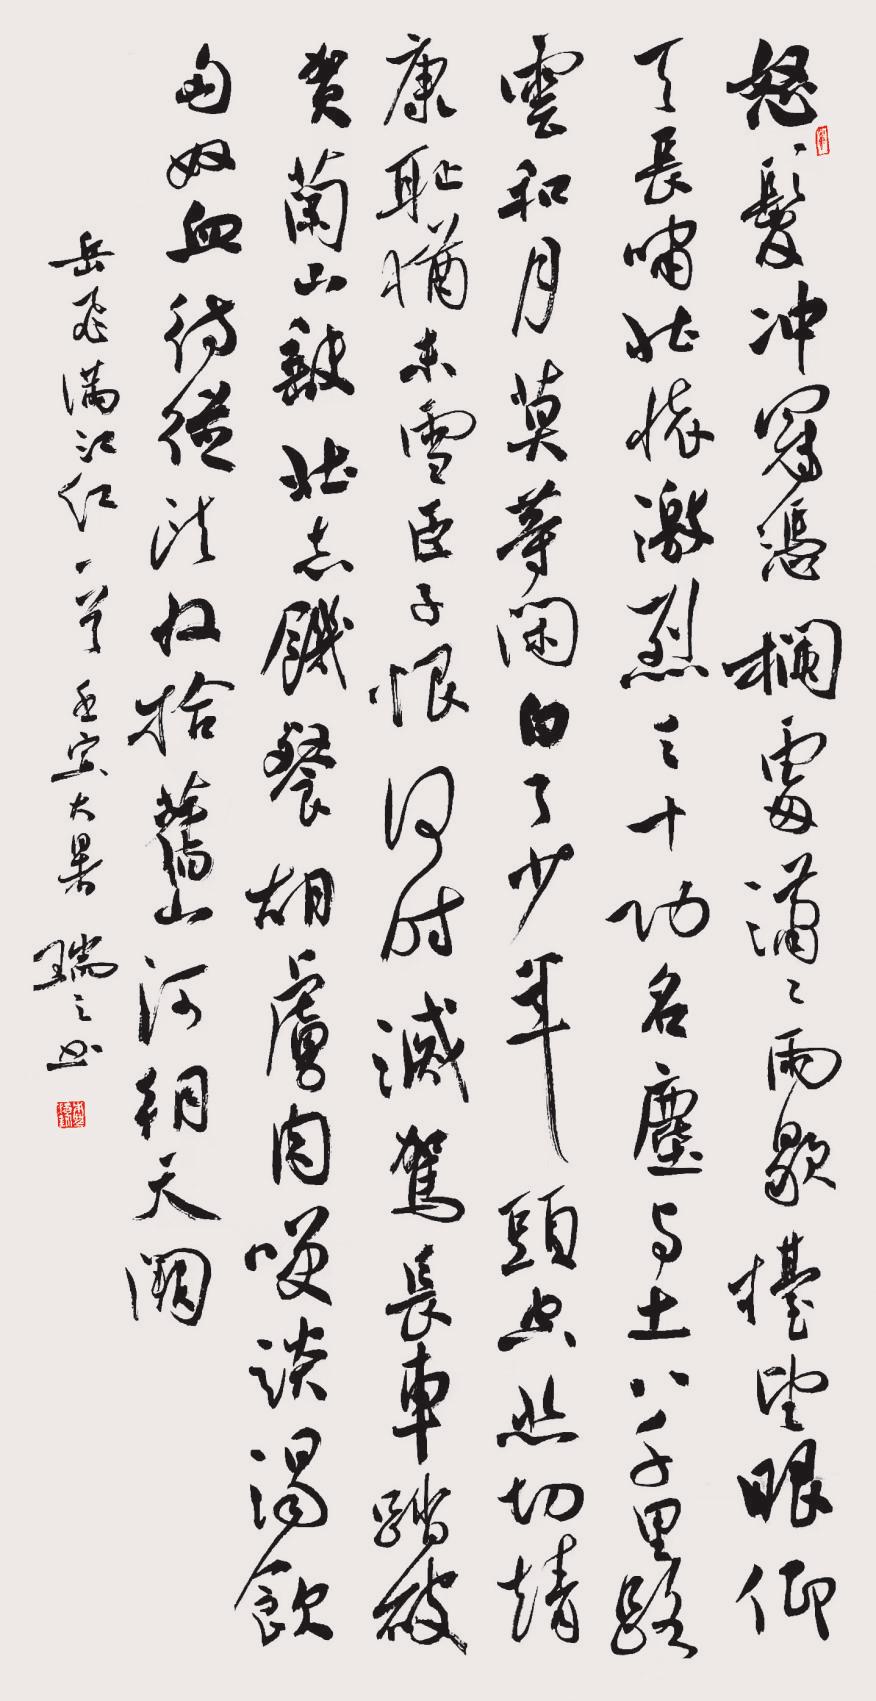 怒髮冲冠憑欄處瀟々雨歇擡望眼仰
天長嘯壯懷激烈三十功名塵与土八千里路
雲和月莫等閑白了少年頭空悲切靖
康恥猶未雪臣子恨何時滅駕長車踏破
賀蘭山缺壯志饑餐胡虜肉咲談渴飲
匈奴血待從頭收拾舊山河朝天闕
岳飛满江红一首壬寅大暑瑞之书